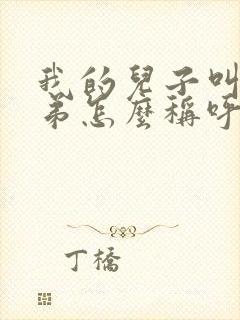 我的兒子叫
弟怎麼稱呼
丁橋